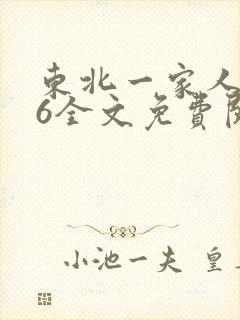 東北一家人
6全文免費閱
小池一夫 皇